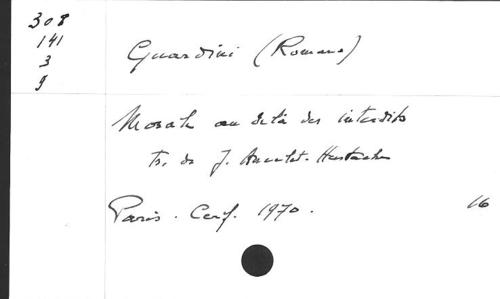 308
141
3
9
Guardini (Romano)
Morale au delà des interdits
tr. de J. Ancelet-Hustache
Paris. Cerf. 1970.
16